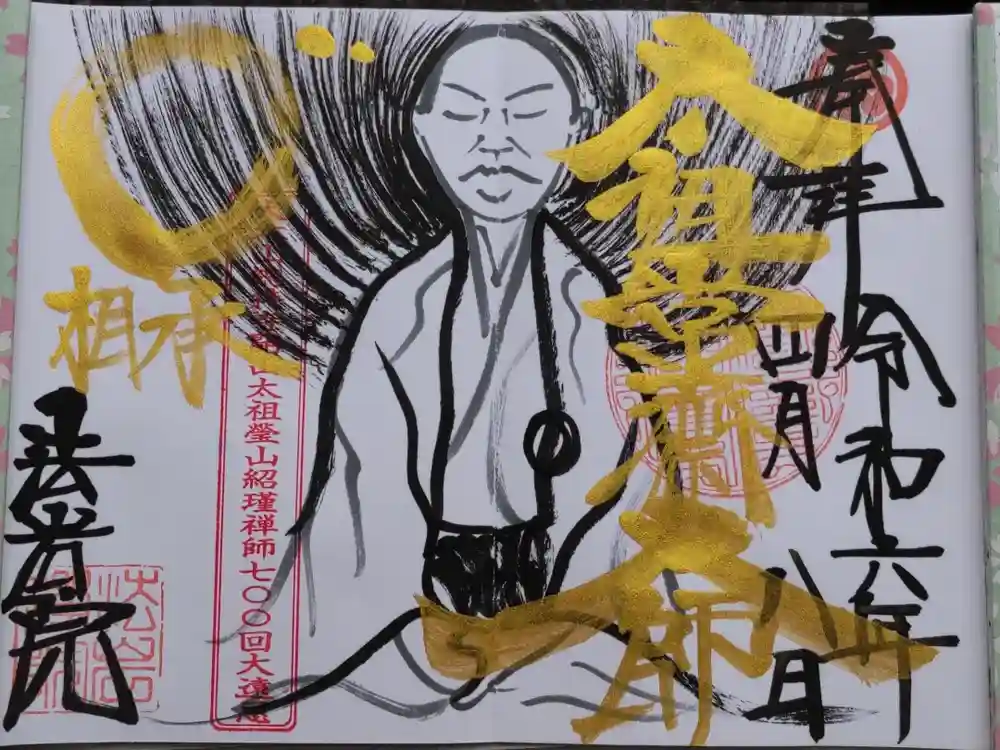 奉拝
令和六年
四月八日
太祖常濟大師
相承
山太祖瑩山紹瑾禪師七〇〇回大遠忌